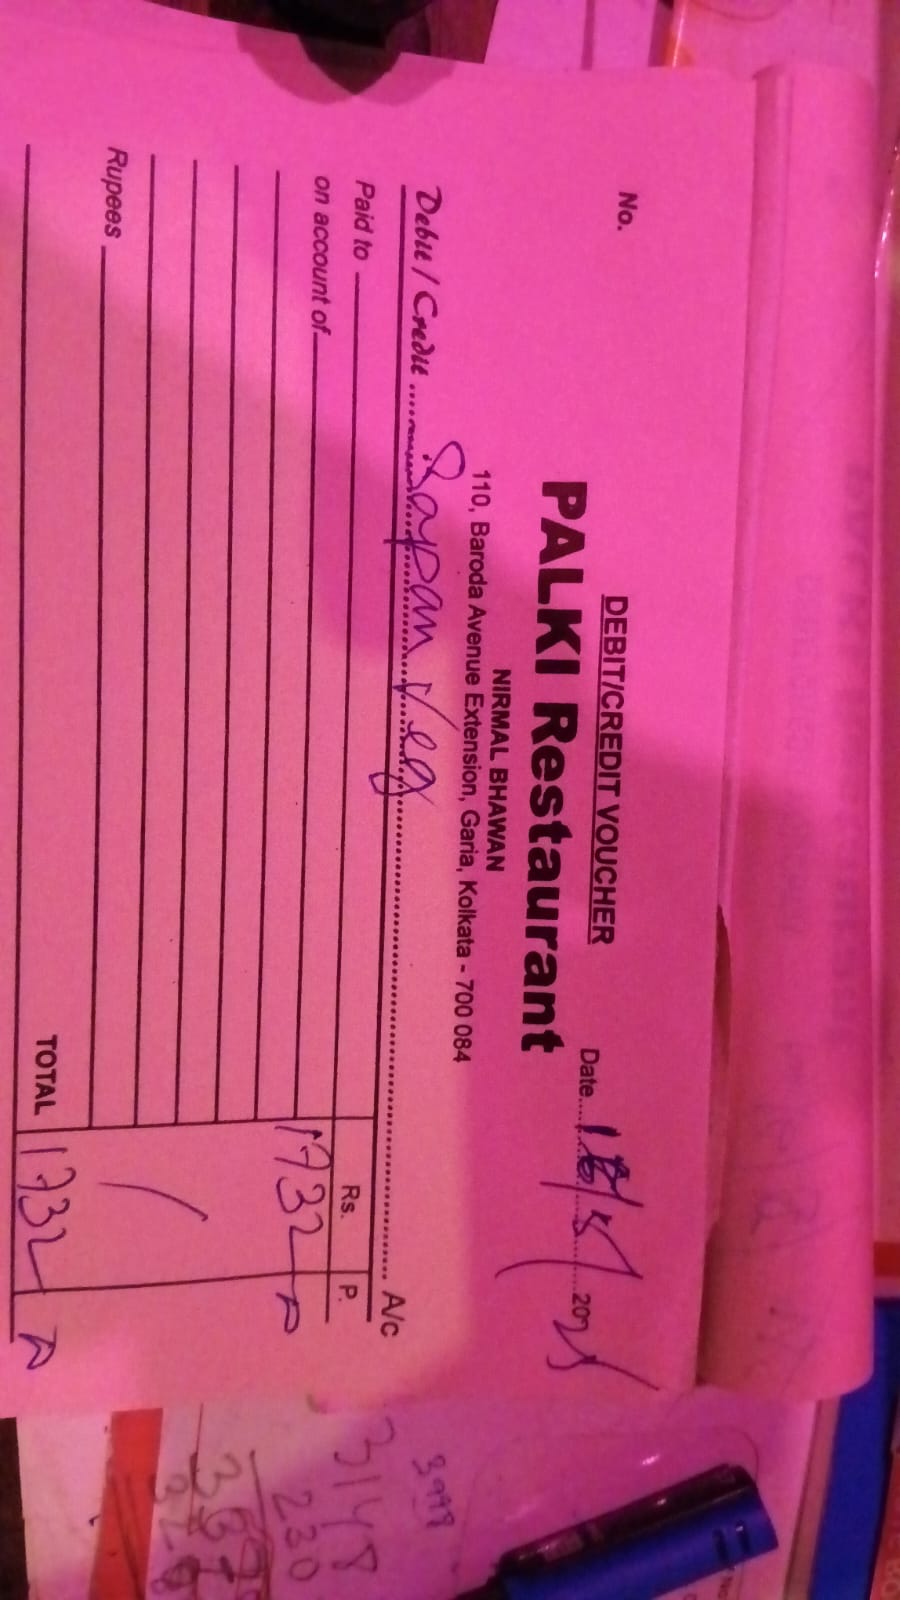 DEBIT/CREDIT VOUCHER
No.
Date 2025
PALKI Restaurant
NIRMAL BHAWAN
110, Baroda Avenue Extension, Garia, Kolkata - 700 084
Debit / Credit Sapan Veg A/c
Paid to Rs. P.
on account of 1732
Rupees
TOTAL 1732
3998
3148
230